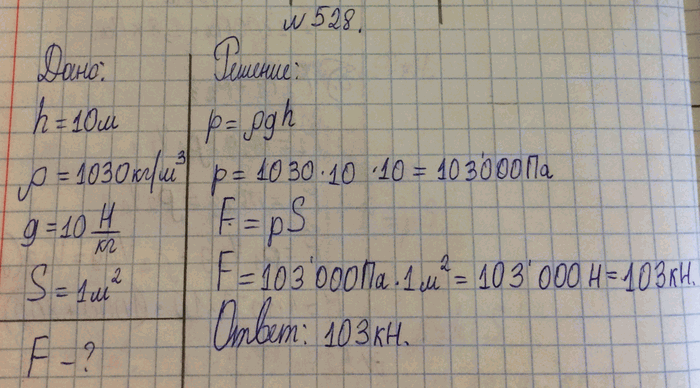 №528.
Дано:
h=10м
ρ=1030кг/м³
g=10 Н/кг
S=1м²
F-?
Решение:
p=ρgh
p=1030·10·10=103'000Па
F=pS
F=103'000Па·1м²=103'000Н=103кН.
Ответ: 103кН.